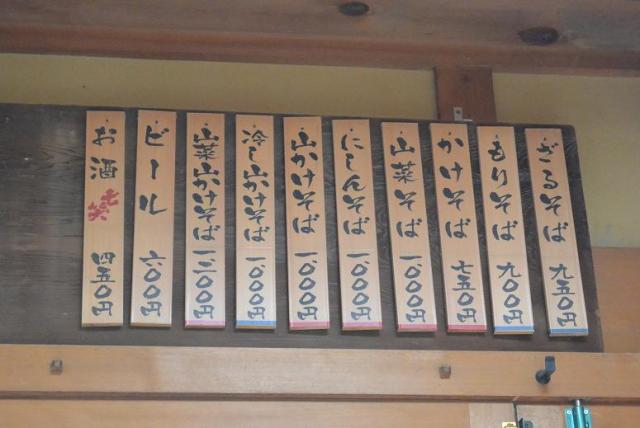 ざるそば 九五〇円
もりそば 九〇〇円
かけそば 七五〇円
山菜そば 一、〇〇〇円
にしんそば 一、〇〇〇円
山かけそば 一、〇〇〇円
冷し山かけそば 一、〇〇〇円
山菜山かけそば 一、二〇〇円
ビール 六〇〇円
お酒 七笑 四五〇円